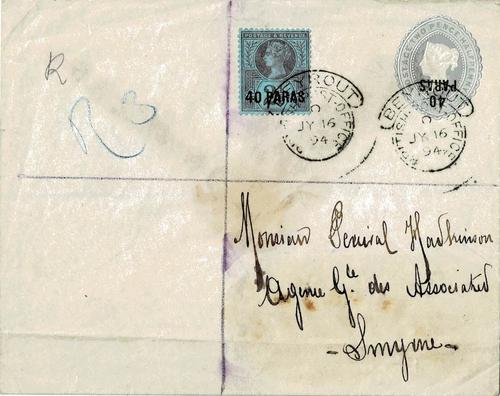 R
R 3
POSTAGE & REVENUE
40 PARAS
BEYROUT
BRITISH-POST-OFFICE
D
JY 16
94
40
PARAS
BEYROUT
BRITISH-POST-OFFICE
D
JY 16
94
Monsieur Percival Hadkinson
Agence Gle des Associated
- Smyrne -